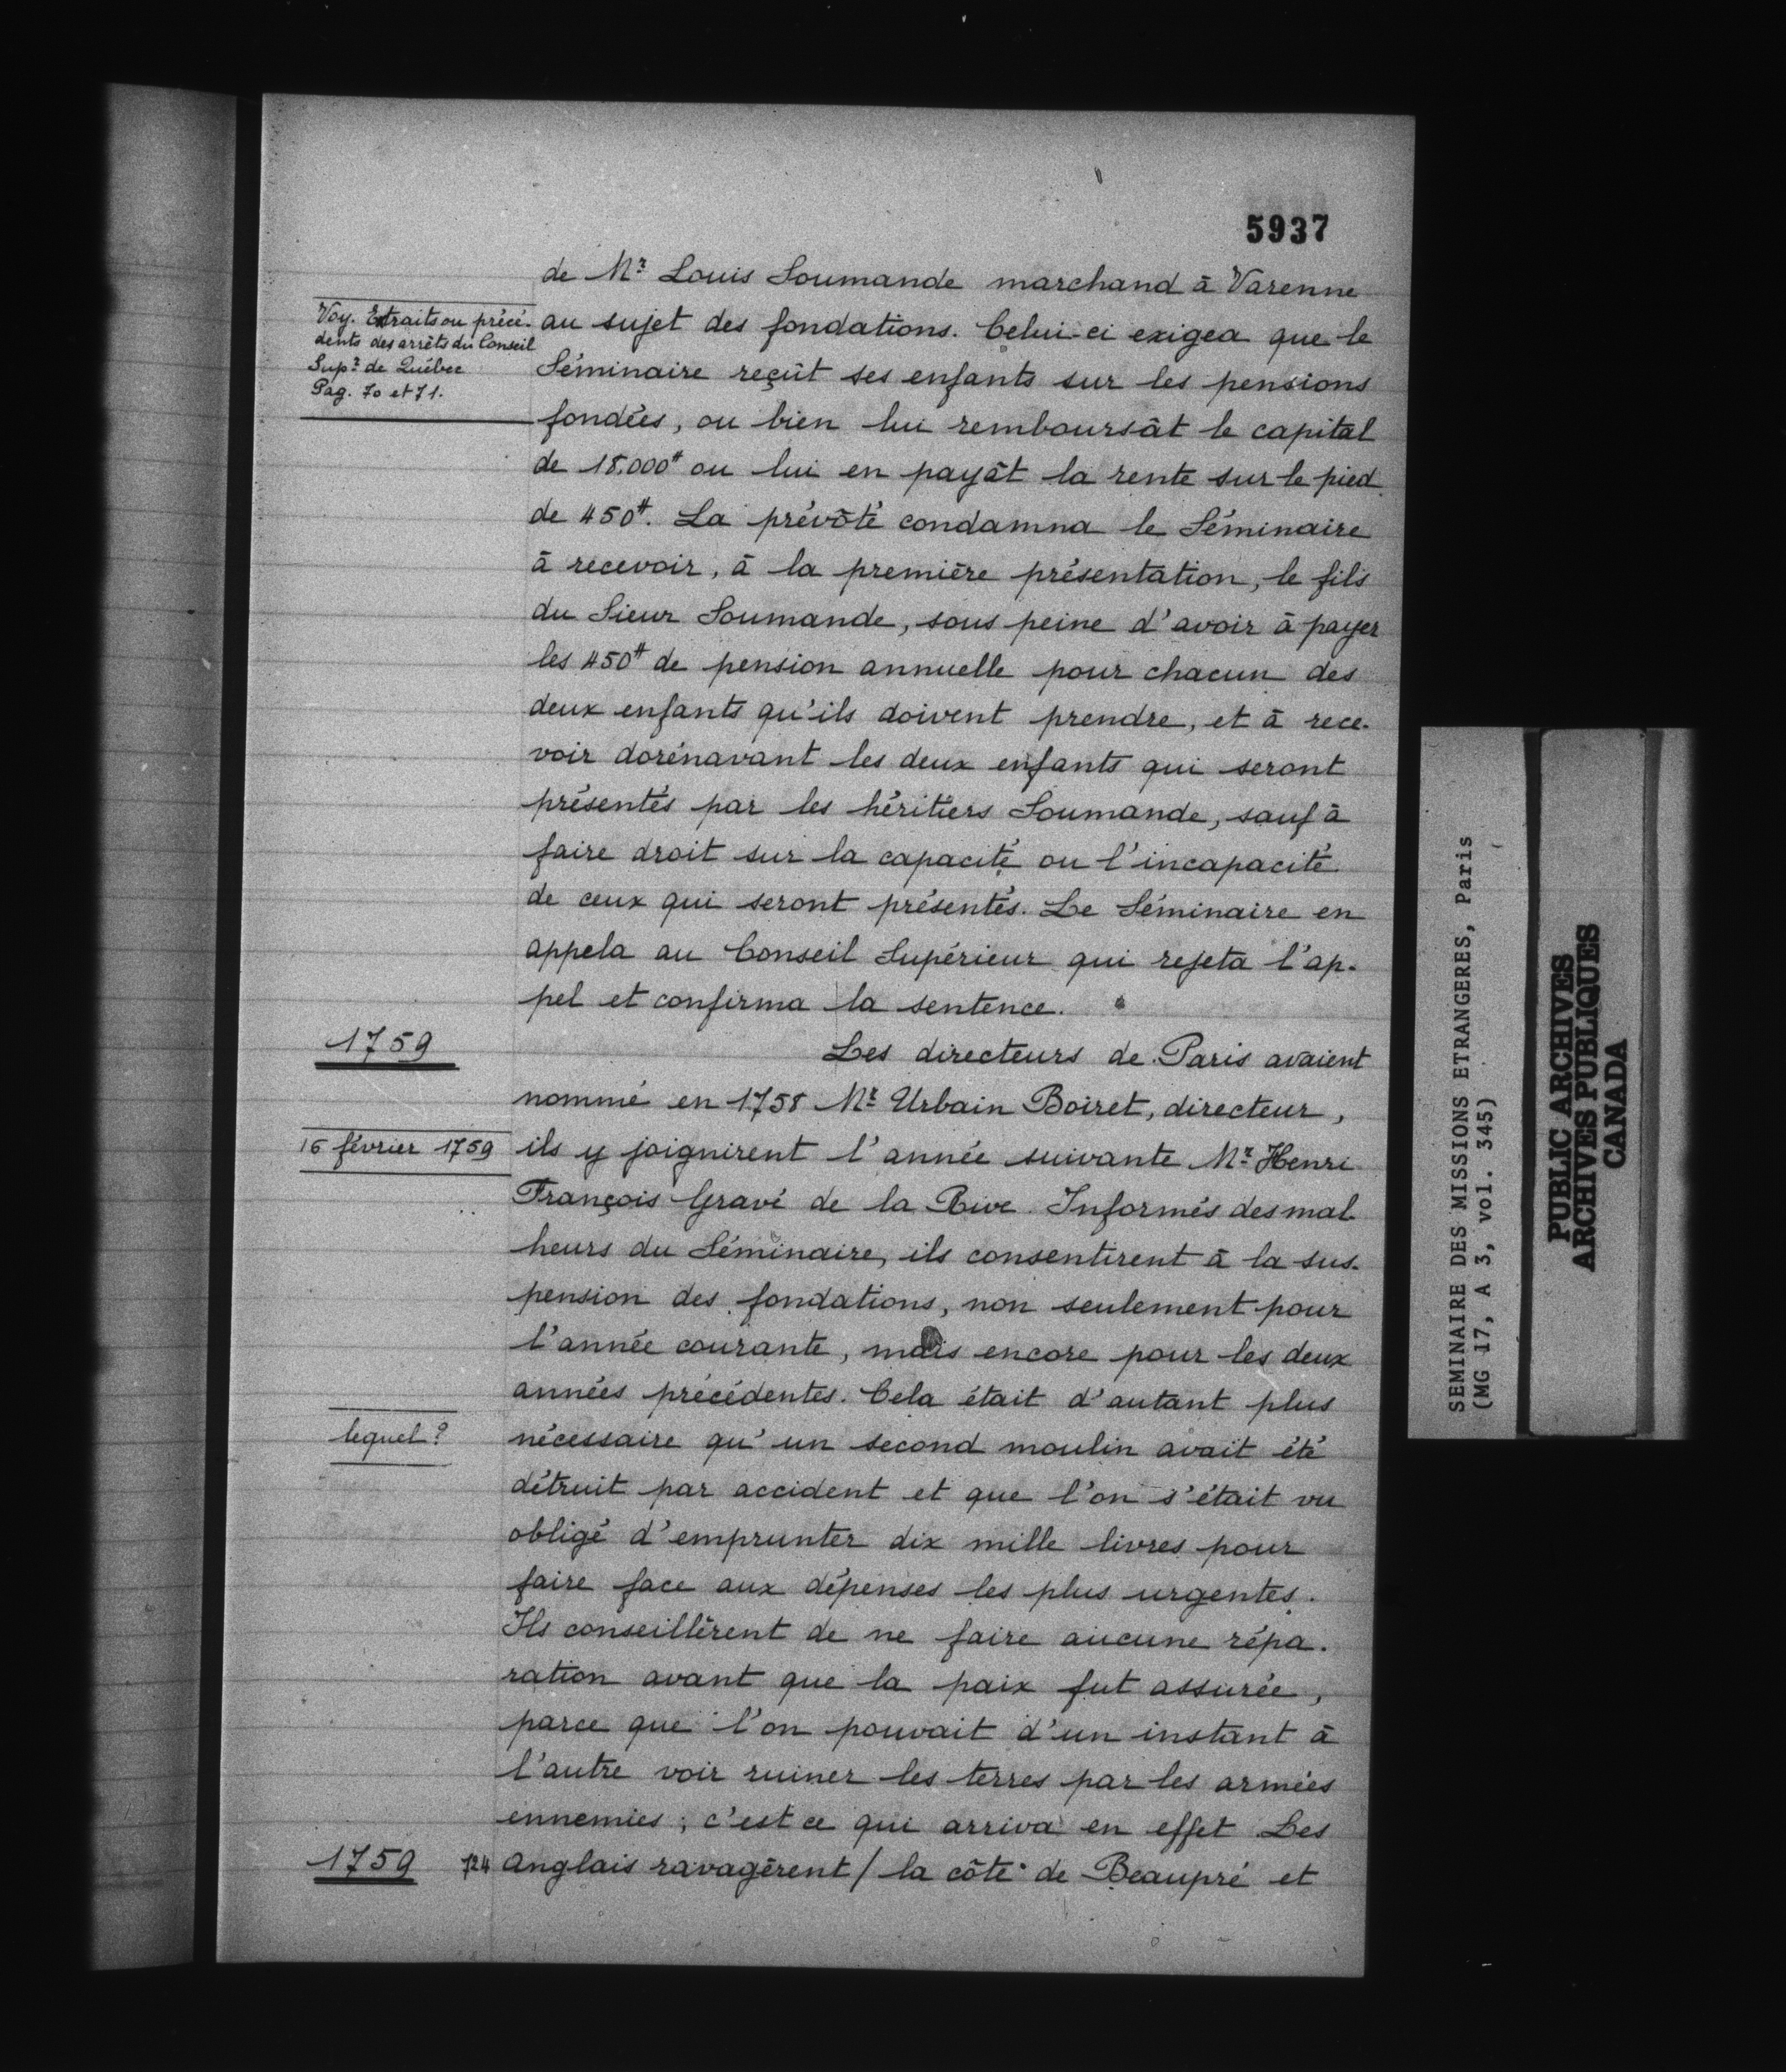 5937
de Mr Louis Soumande marchand à Varenne
Voy. Extraits ou précé-
dents des arrêts du Conseil
Supr de Québec
Pag. 70 et 71.
au sujet des fondations. Celui-ci exigea que le
Séminaire reçût ses enfants sur les pensions
fondées, ou bien lui remboursât le capital
de 18.000# ou lui en payât la rente sur le pied
de 450#. La prévôté condamna le Séminaire
à recevoir, à la première présentation, le fils
du Sieur Soumande, sous peine d'avoir à payer
les 450# de pension annuelle pour chacun des
deux enfants qu'ils doivent prendre, et à rece-
voir dorénavant les deux enfants qui seront
présentés par les héritiers Soumande, sauf à
faire droit sur la capacité ou l'incapacité
de ceux qui seront présentés. Le Séminaire en
appela au Conseil Supérieur qui rejeta l'ap-
pel et confirma la sentence.
1759
Les directeurs de Paris avaient
nommé en 1758 Mr Urbain Boiret, directeur,
16 février 1759
ils y joignirent l'année suivante Mr Henri
François Gravé de la Rive. Informés des mal-
heurs du Séminaire, ils consentirent à la sus-
pension des fondations, non seulement pour
l'année courante, mais encore pour les deux
années précédentes. Cela était d'autant plus
lequel?
nécessaire qu'un second moulin avait été
détruit par accident et que l'on s'était vu
obligé d'emprunter dix mille livres pour
faire face aux dépenses les plus urgentes.
Ils conseillèrent de ne faire aucune répa-
ration avant que la paix fut assurée,
parce que l'on pouvait d'un instant à
l'autre voir ruiner les terres par les armées
ennemies; c'est ce qui arriva en effet. Les
1759
124 Anglais ravagèrent / la côte de Beaupré et
SEMINAIRE DES MISSIONS ETRANGERES, Paris
(MG 17, A 3, vol. 345)
PUBLIC ARCHIVES
ARCHIVES PUBLIQUES
CANADA